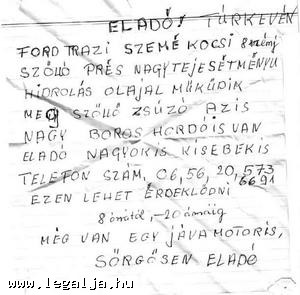 ELADÓ! TÚRKEVÉN
FORD TRAZI SZEMÉ KOCSI 8 szémj
SZŐLLŐ PRÉS NAGYTEJESÉTMÉNYU
HIDROLÁS OLAJAL MŰKŰDIK
MEG SZŐLLŐ ZSÚZÓ AZIS
NAGY BOROS HORDÓIS VAN
ELADÓ NAGYOKIS KISEBÉKIS
TELEFON SZÁM, 06, 56, 20, 573
6691
EZEN LEHET ÉRDEKLŐDNI
8 órátol, -20 óráig
MÉG VAN EGY JÁVA MOTORIS,
SŐRGŐSEN ELADÓ
www.legalja.hu